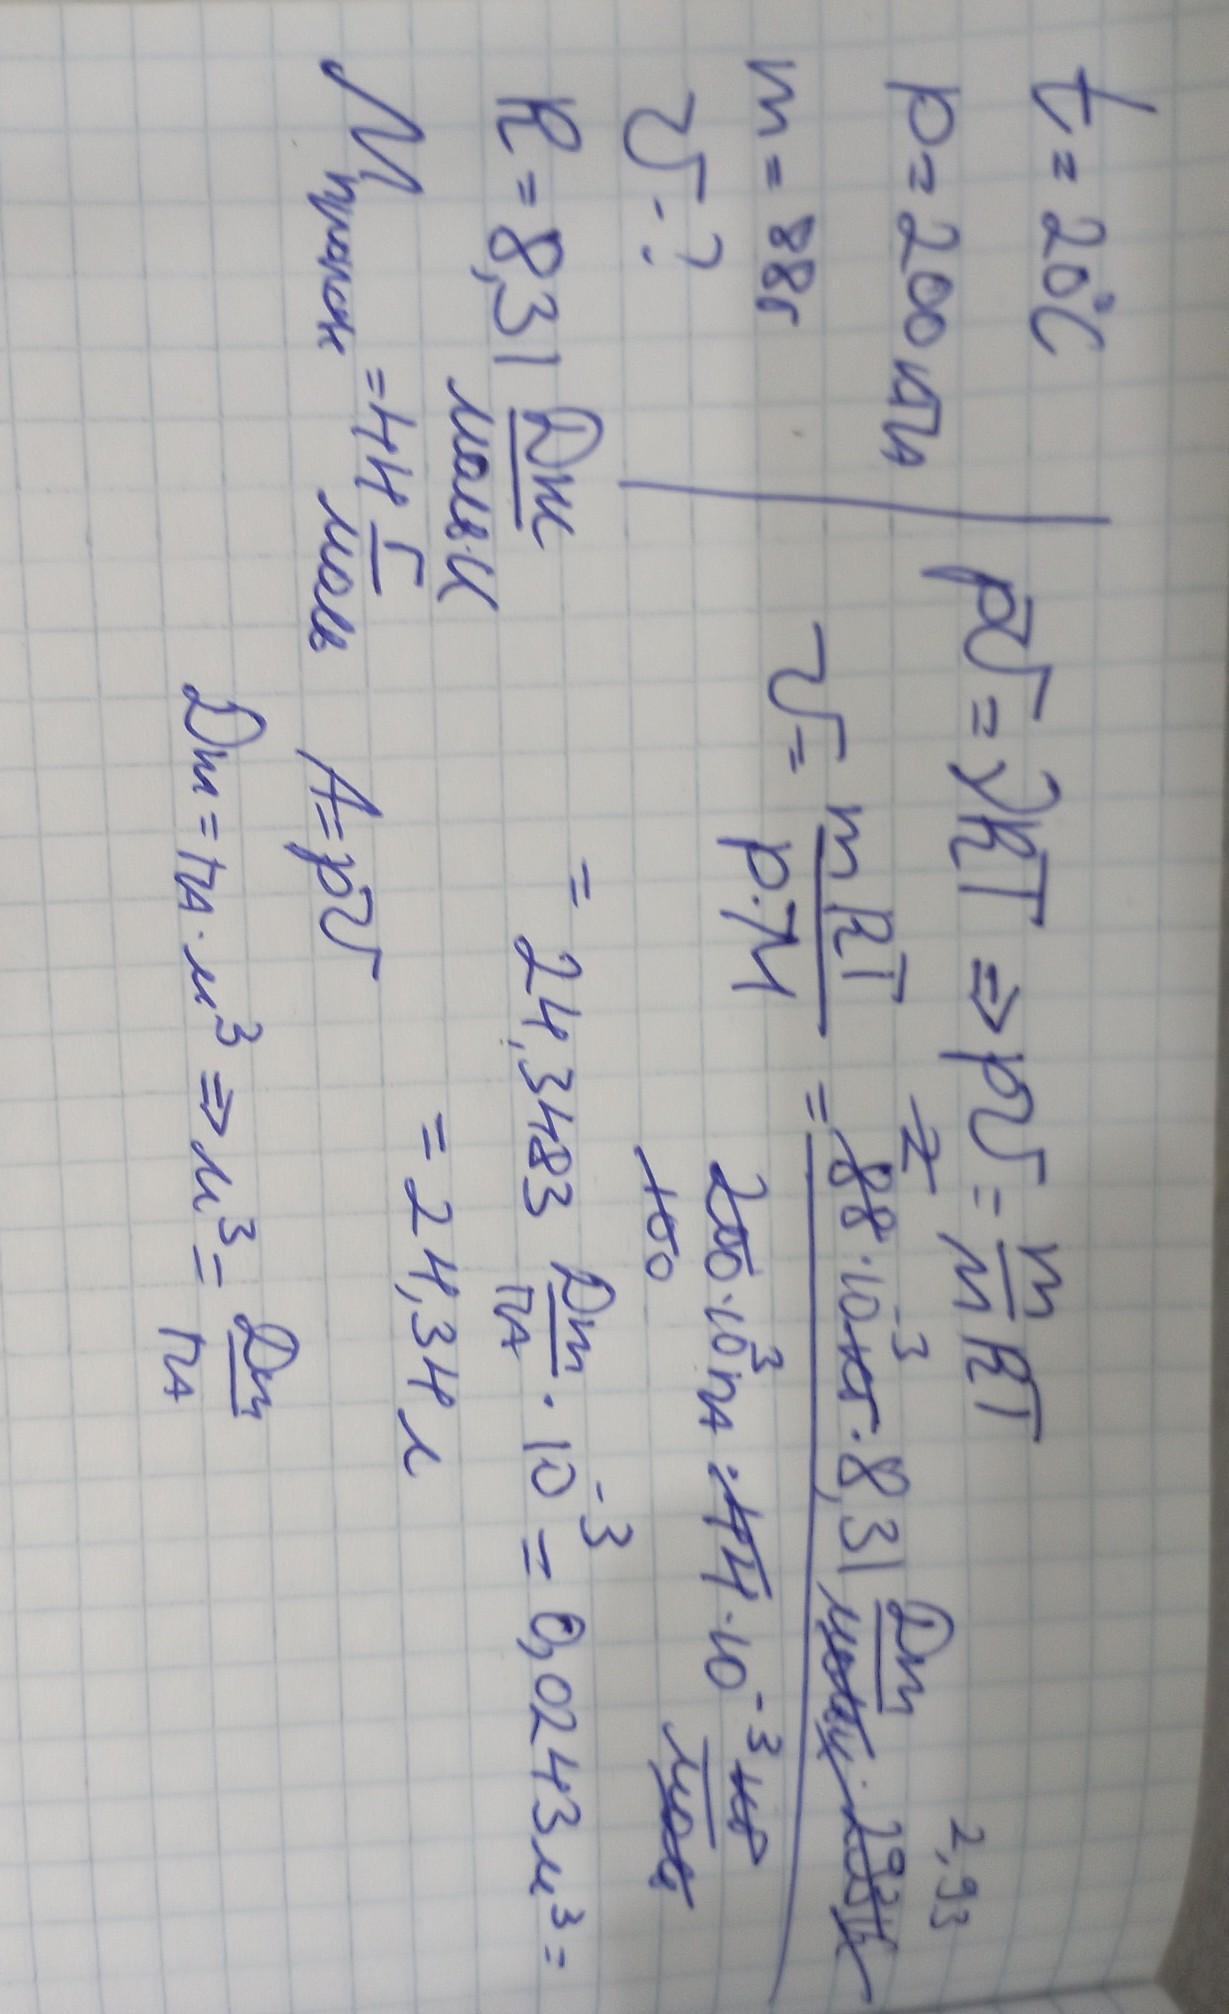 t = 20°C
p = 200 кПа
m = 88г
V - ?
R = 8,31 Дж / моль·К
M пропан = 44 г / моль
pV = νRT ⇒ pV = m/M RT
V = mRT / p·M = 88·10⁻³ кг · 8,31 Дж / моль·К · 293К / 200·10³ Па · 44·10⁻³ кг / моль =
2
2,93
100
= 24,3483 Дж/Па · 10⁻³ = 0,0243 м³ =
= 24,34 л
A = pV
Дж = Па · м³ ⇒ м³ = Дж / Па